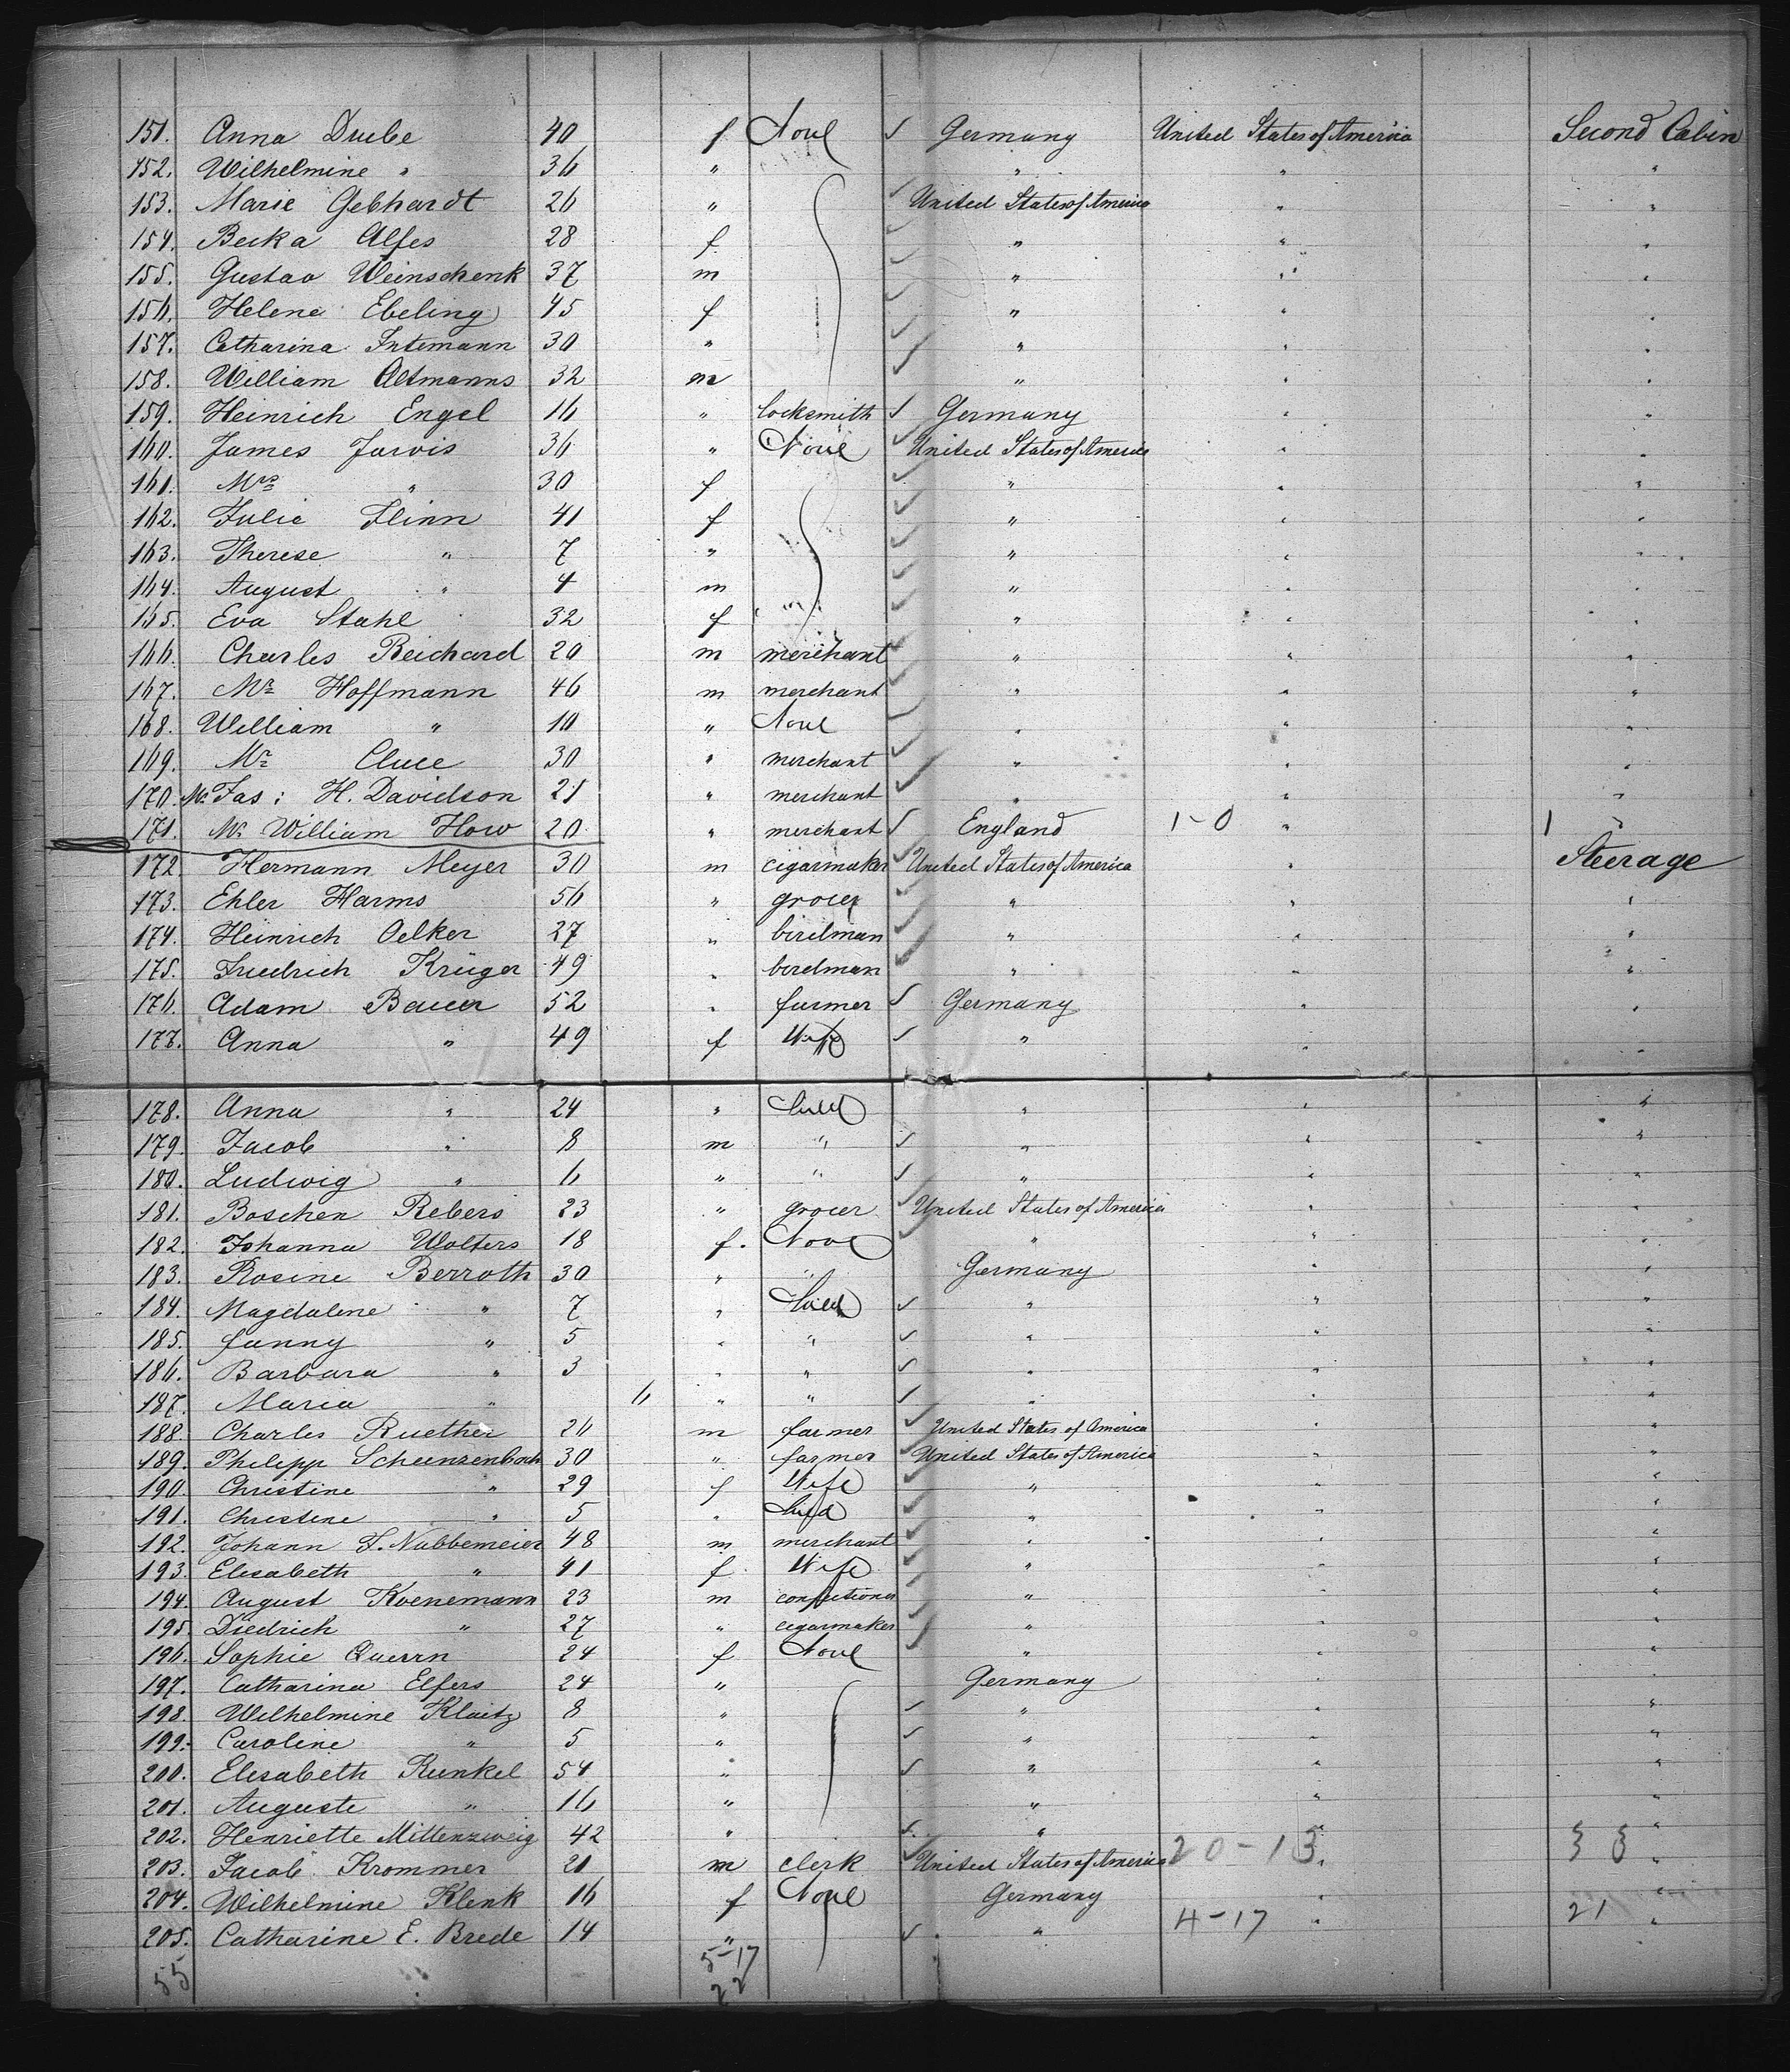 151. Anna Drube 40 f None ✓ Germany United States of America Second Cabin
152. Wilhelmine " 36 " " " "
153. Marie Gebhardt 26 " ✓ United States of America " "
154. Becka Alfes 28 f ✓ " " "
155. Gustav Weinschenk 37 m ✓ " " "
156. Helene Ebeling 45 f ✓ " " "
157. Catharina Intemann 30 " ✓ " " "
158. William Altmanns 32 m ✓ " " "
159. Heinrich Engel 16 " locksmith ✓ Germany " "
160. James Jarvis 36 " None ✓ United States of America " "
161. Mrs " 30 f ✓ " " "
162. Julie Flinn 41 f ✓ " " "
163. Therese " 7 " ✓ " " "
164. August " 4 m ✓ " " "
165. Eva Stahl 32 f ✓ " " "
166. Charles Reichard 20 m merchant ✓ " " "
167. Mr Hoffmann 46 m merchant ✓ " " "
168. William " 10 " None ✓ " " "
169. Mr Cluce 30 " merchant ✓ " " "
170. Mr Jas: H. Davidson 21 " merchant ✓ " " "
171. Mr William How 20 " merchant ✓ England 1-0 " 1 "
172. Hermann Meyer 30 m cigarmaker ✓ United States of America " Steerage
173. Ehler Harms 56 " grocer ✓ " " "
174. Heinrich Oelker 27 " birdman ✓ " " "
175. Friedrich Krüger 49 " birdman ✓ " " "
176. Adam Bauer 52 " farmer ✓ Germany " "
177. Anna " 49 f Wife ✓ " " "
178. Anna " 24 " Child " " "
179. Jacob " 8 m " ✓ " " "
180. Ludwig " 6 " " ✓ " " "
181. Boschen Rebers 23 " grocer ✓ United States of America " "
182. Johanna Wolters 18 f. None ✓ " " "
183. Rosine Berroth 30 " " Germany " "
184. Magdalene " 7 " Child ✓ " " "
185. fanny " 5 " " ✓ " " "
186. Barbara " 3 " " ✓ " " "
187. Maria " 6 " " ✓ " " "
188. Charles Ruether 26 m farmer ✓ United States of America " "
189. Philipp Scheunzenbach 30 " farmer ✓ United States of America " "
190. Christine " 29 f Wife ✓ " " "
191. Christine " 5 " Child ✓ " " "
192. Johann F. Nubbemeier 48 m merchant ✓ " " "
193. Elisabeth " 41 f Wife ✓ " " "
194. August Koenemann 23 m confectioner ✓ " " "
195. Diedrich " 27 " cigarmaker ✓ " " "
196. Sophie Querrn 24 f None ✓ " " "
197. Catharina Elfers 24 " Germany " "
198. Wilhelmine Klaitz 8 " ✓ " " "
199. Caroline " 5 " ✓ " " "
200. Elisabeth Kunkel 54 " ✓ " " "
201. Auguste " 16 " " " "
202. Henriette Mittenzweig 42 " ✓ " " "
203. Jacob Krommer 21 m clerk ✓ United States of America 20-13 "
204. Wilhelmine Klenk 16 f None Germany " "
205. Catharine E. Brede 14 " ✓ " 4-17 " 21 "
55 5-17
22